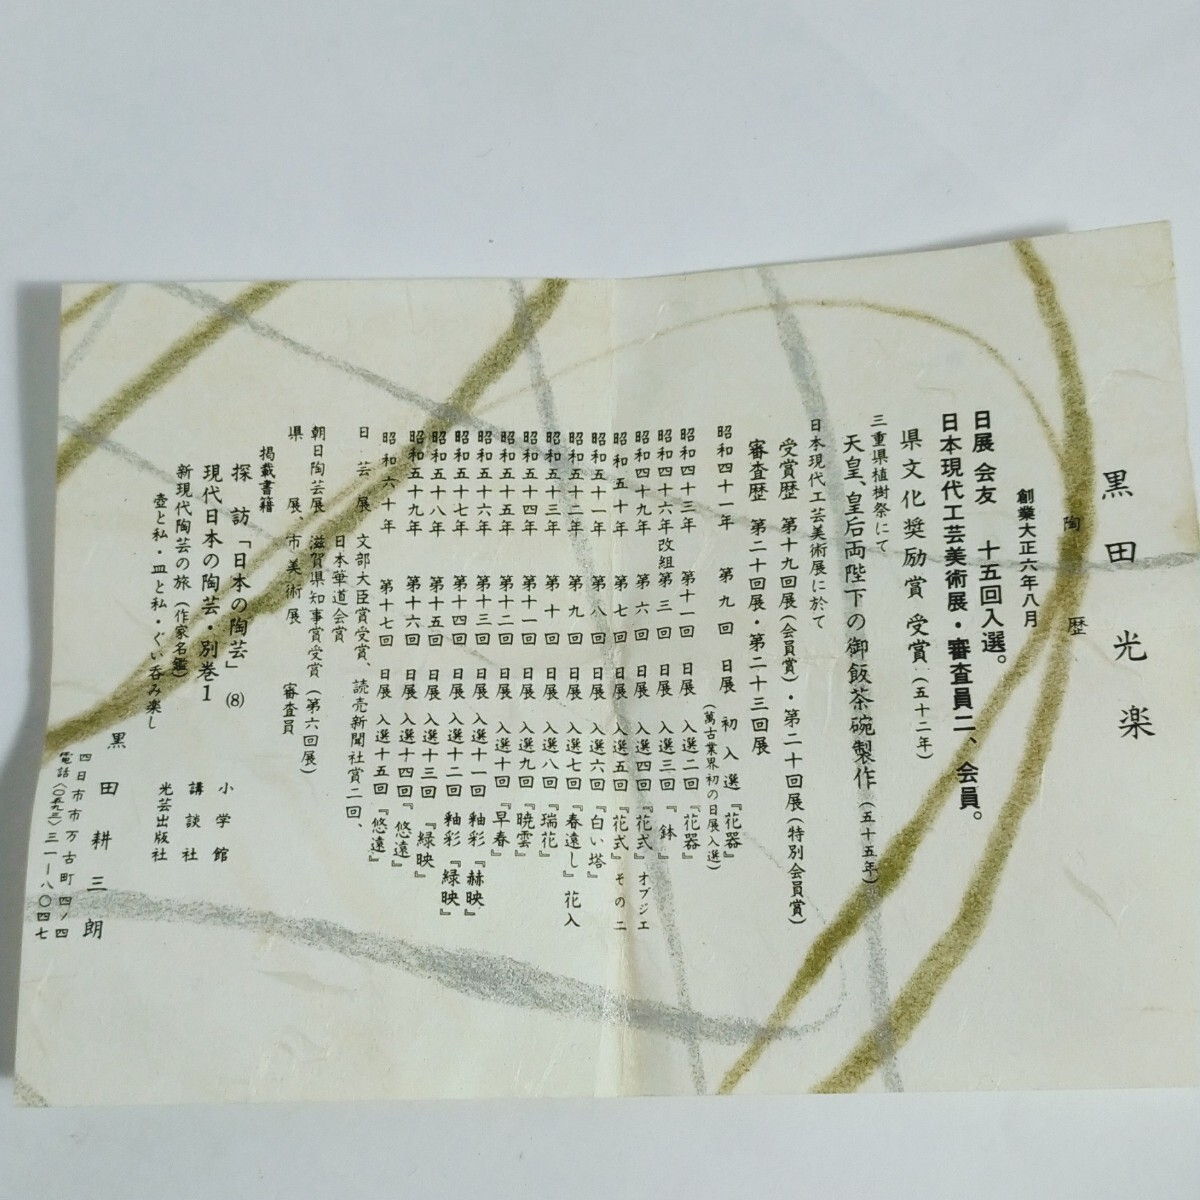 黒田光楽
陶歴
創業大正六年八月
日展会友 十五回入選。
日本現代工芸美術展・審査員二、会員。
県文化奨励賞 受賞(五十二年)
三重県植樹祭にて
天皇、皇后両陛下の御飯茶碗製作(五十五年)
日本現代工芸美術展に於て
受賞歴 第十九回展(会員賞)・第二十回展(特別会員賞)
審査歴 第二十回展・第二十三回展
昭和四十一年 第九回 日展 初入選『花器』
(萬古業界初の日展入選)
昭和四十三年 第十一回 日展 入選二回『花器』
昭和四十六年改組第三回 日展 入選三回『鉢』
昭和四十九年 第六回 日展 入選四回『花式』オブジエ
昭和五十年 第七回 日展 入選五回『花式』その二
昭和五十一年 第八回 日展 入選六回『白い塔』
昭和五十二年 第九回 日展 入選七回『春遠し』花入
昭和五十三年 第十回 日展 入選八回『瑞花』
昭和五十四年 第十一回 日展 入選九回『暁雲』
昭和五十五年 第十二回 日展 入選十回『早春』
昭和五十六年 第十三回 日展 入選十一回 釉彩『赫映』
昭和五十七年 第十四回 日展 入選十二回 釉彩『緑映』
昭和五十八年 第十五回 日展 入選十三回『緑映』
昭和五十九年 第十六回 日展 入選十四回『悠遠』
昭和六十年 第十七回 日展 入選十五回『悠遠』
日芸展 文部大臣賞受賞、読売新聞社賞二回、
日本華道会賞
朝日陶芸展 滋賀県知事賞受賞(第六回展)
県展、市美術展 審査員
掲載書籍
探訪「日本の陶芸」(8) 小学館
現代日本の陶芸・別巻1 講談社
新現代陶芸の旅(作家名鑑) 光芸出版社
壺と私・皿と私・ぐい呑み楽し
黒田耕三朗
四日市市万古町四ノ四
電話(〇五九三)三一ー八〇四七